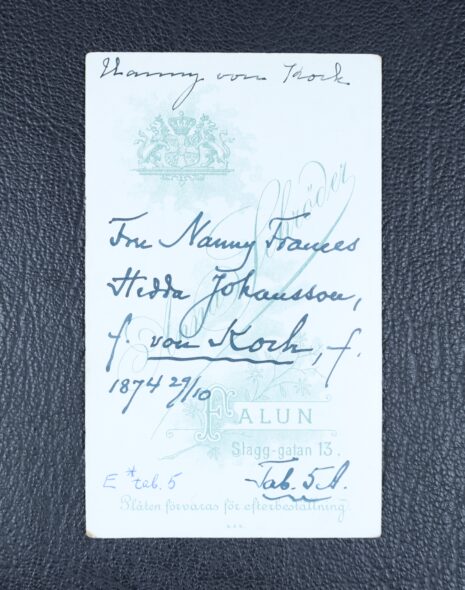 Nanny von Kock
Schröder
Fru Nanny Frances
Hedda Johansson,
f. von Koch, f.
1874 29/10
FALUN
Slagg-gatan 13.
E * tab. 5
Tab. 5 A.
Plåten förvaras för efterbeställning.